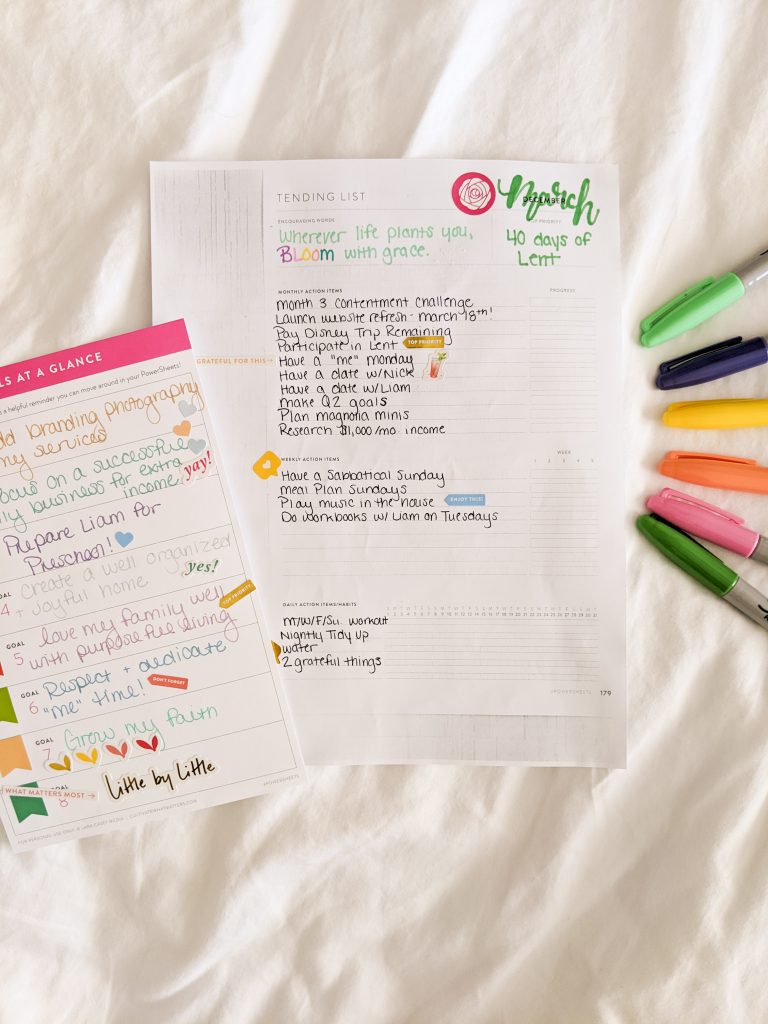 TENDING LIST
March
DECEMBER
ENCOURAGING WORDS
TOP PRIORITY
Wherever life plants you,
BLOOM with grace.
40 days of
Lent
MONTHLY ACTION ITEMS
PROGRESS
month 3 contentment challenge
Launch website refresh - march 18th!
Pay Disney Trip Remaining
Participate in Lent TOP PRIORITY
GRATEFUL FOR THIS → Have a "me" monday
Have a date w/Nick
Have a date w/Liam
make Q2 goals
Plan magnolia minis
Research $1,000/mo. income
WEEKLY ACTION ITEMS
WEEK
1 2 3 4 5
Have a Sabbatical Sunday
meal Plan Sundays
Play music in the house ENJOY THIS!
Do workbooks w/ Liam on Tuesdays
DAILY ACTION ITEMS/HABITS
1 2 3 4 5 6 7 8 9 10 11 12 13 14 15 16 17 18 19 20 21 22 23 24 25 26 27 28 29 30 31
M/W/F/Su. workout
Nightly Tidy up
water
2 grateful things
#POWERSHEETS 179
LS AT A GLANCE
s a helpful reminder you can move around in your PowerSheets!
dd branding photography
my services
focus on a successful
ly business for extra
income. yay!
Prepare Liam for
Preschool!
GOAL
4 create a well organized
+ joyful home yes!
TOP PRIORITY
GOAL
5 love my family well
with purposeful living
GOAL
6 Respect + dedicate
"me" time! DON'T FORGET
GOAL
7 Grow my faith
WHAT MATTERS MOST →
8 Little by Little
#POWERSHEETS
FOR PERSONAL USE ONLY © LARA CASEY MEDIA | CULTIVATEWHATMATTERS.COM